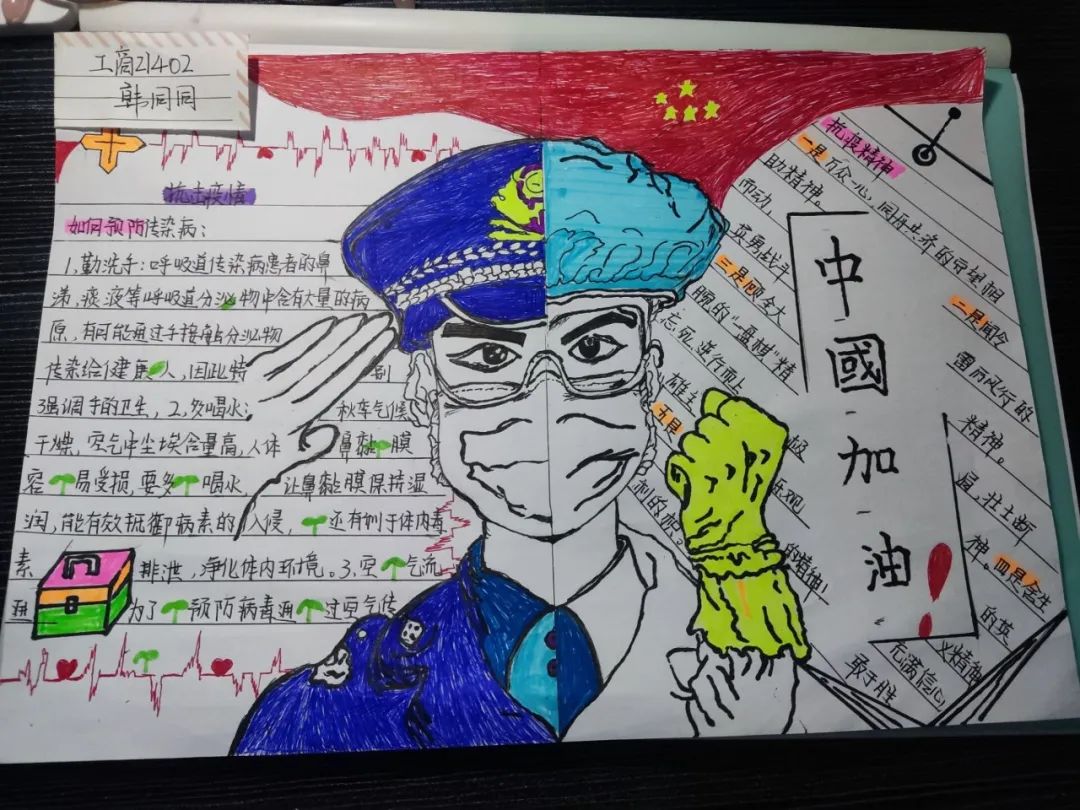 工商21402
韩同同
抗击疫情
如何预防传染病：
1.勤洗手：呼吸道传染病患者的鼻
涕、痰液等呼吸道分泌物中含有大量的病
原，有可能通过手接触分泌物
传染给健康人，因此特别
强调手的卫生，2.多喝水；秋季气候
干燥，空气中尘埃含量高，人体鼻黏膜
容易受损，要多喝水，让鼻黏膜保持湿
润，能有效抵御病素的入侵，还有利于体内毒
素排泄，净化体内环境。3.空气流
为了预防病毒通过空气传
抗疫精神
一是万众一心，同舟共济的守望相
助精神。
二是闻令
而动，
雷厉风行的
英勇战斗
精神。
三是顾全大
局，壮士断
腕的“一盘棋”精
神。四是舍生
忘死，逆行而上
的英
雄主
义精神
五是
充满信心，
敢于胜
利的
乐观
的精神！
中國加油！